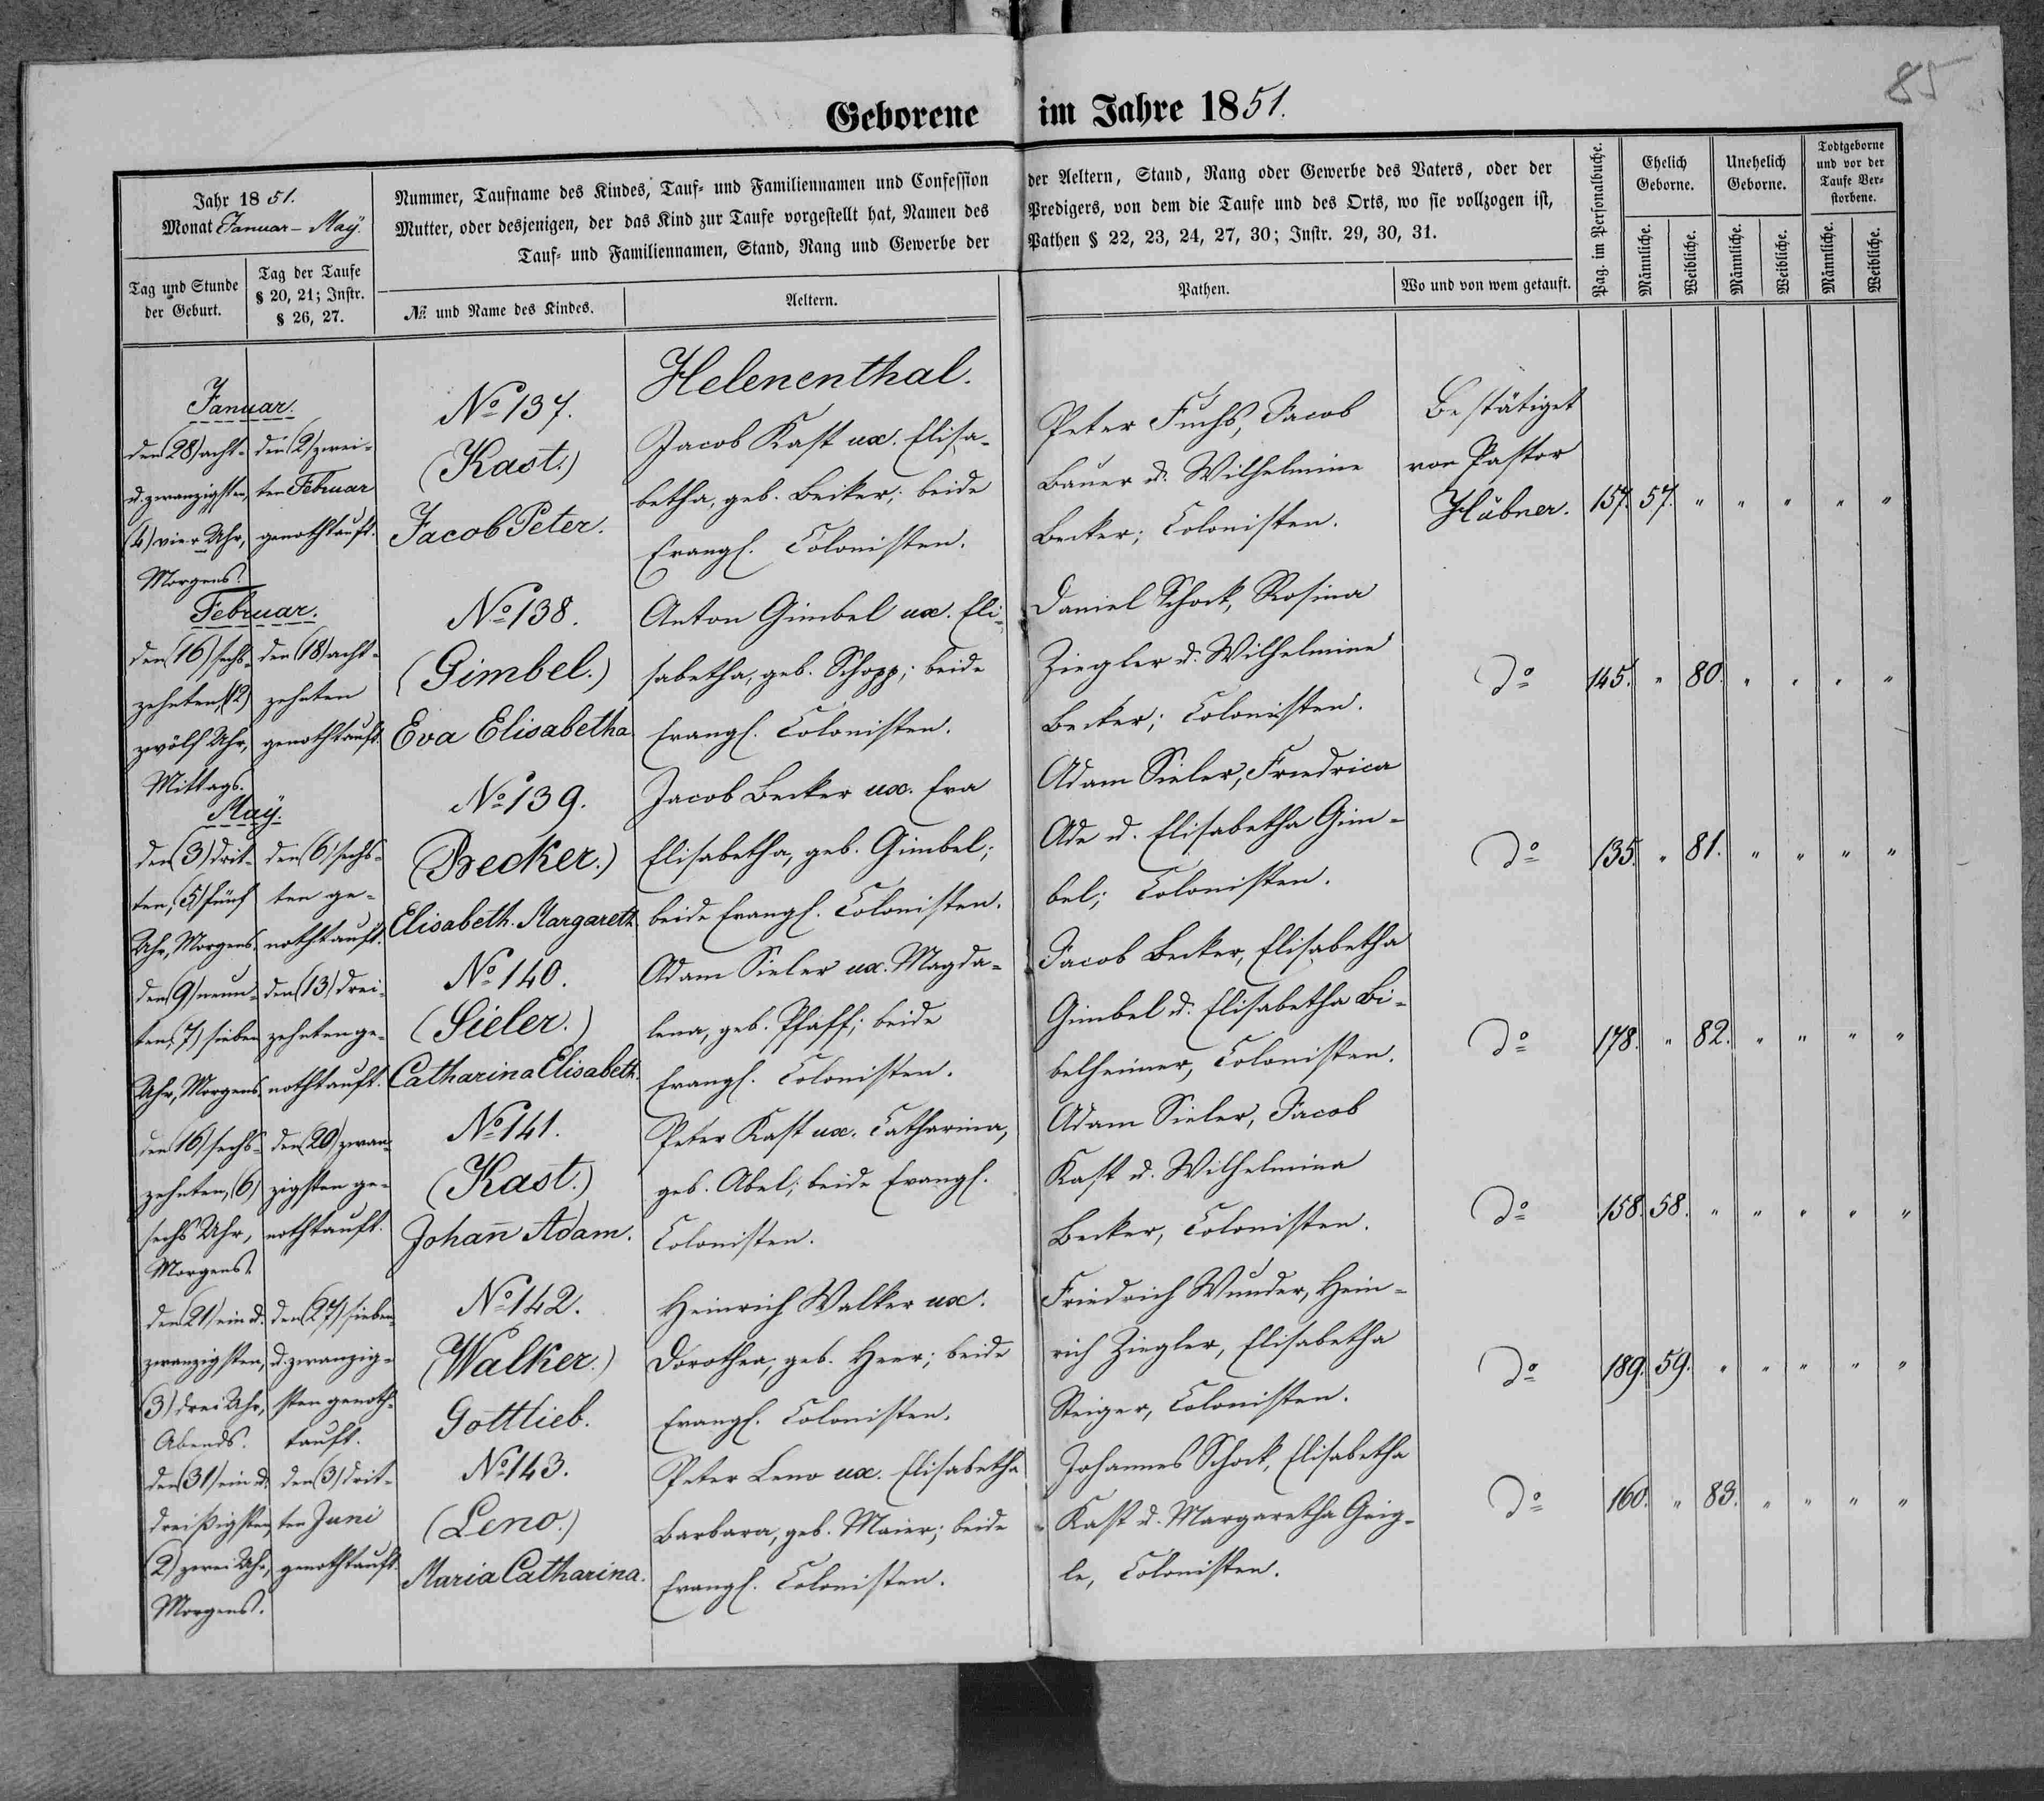 85
Geborene im Jahre 1851.
Jahr 1851.
Monat Januar - Maÿ.
Tag und Stunde
der Geburt.
Tag der Taufe
§ 20, 21; Instr.
§ 26, 27.
Nummer, Taufname des Kindes, Tauf- und Familiennamen und Confession
Mutter, oder desjenigen, der das Kind zur Taufe vorgestellt hat, Namen des
Tauf- und Familiennamen, Stand, Rang und Gewerbe der
№ und Name des Kindes.
Aeltern.
der Aeltern, Stand, Rang oder Gewerbe des Vaters, oder der
Predigers, von dem die Taufe und des Orts, wo sie vollzogen ist,
Pathen § 22, 23, 24, 27, 30; Instr. 29, 30, 31.
Pathen.
Wo und von wem getauft.
Pag. im Personalbuche.
Ehelich
Geborne.
Unehelich
Geborne.
Todtgeborne
und vor der
Taufe Ver-
storbene.
Männliche.
Weibliche.
Männliche.
Weibliche.
Männliche.
Weibliche.
Helenenthal.
Januar.
den (28) acht-
u. zwanzigsten,
(4) vier Uhr,
Morgens.
den (2) zwei-
ten Februar
genothtauft.
No 137.
(Kast.)
Jacob Peter.
Jacob Kast ux. Elisa-
betha, geb. Becker; beide
Evangl. Colonisten.
Peter Fuchs, Jacob
Bauer u. Wilhelmine
Becker; Colonisten.
Bestätiget
von Pastor
Hübner.
157. 57. " " " " "
Februar.
den (16) sechs-
zehnten, (12)
zwölf Uhr,
Mittags.
den (18) acht-
zehnten
genothtauft.
No 138.
(Gimbel.)
Eva Elisabetha.
Anton Gimbel ux. Eli-
sabetha, geb. Schopp; beide
Evangl. Colonisten.
Daniel Schock, Rosina
Ziegler u. Wilhelmine
Becker; Colonisten.
do
145. " 80. " " " "
Maÿ.
den (3) drit-
ten, (5) fünf
Uhr, Morgens.
den (6) sechs-
ten ge-
nothtauft.
No 139.
(Becker.)
Elisabeth. Margareth.
Jacob Becker ux. Eva
Elisabetha, geb. Gimbel;
beide Evangl. Colonisten.
Adam Sieler, Friedrica
Ade u. Elisabetha Gim-
bel; Colonisten.
do
135. " 81. " " " "
den (9) neun-
ten, (7) sieben
Uhr, Morgens.
den (13) drei-
zehnten ge-
nothtauft.
No 140.
(Sieler.)
Catharina Elisabeth.
Adam Sieler ux. Magda-
lena, geb. Pfaff; beide
Evangl. Colonisten.
Jacob Becker, Elisabetha
Gimbel u. Elisabetha Bi-
belheimer, Colonisten.
do
178. " 82. " " " "
den (16) sechs-
zehnten, (6)
sechs Uhr,
Morgens.
den (20) zwan-
zigsten ge-
nothtauft.
No 141.
(Kast.)
Johan̄ Adam.
Peter Kast ux. Catharina,
geb. Abel; beide Evangl.
Colonisten.
Adam Sieler, Jacob
Kast u. Wilhelmina
Becker, Colonisten.
do
158. 58. " " " " "
den (21) ein u.
zwanzigsten,
(3) drei Uhr,
Abends.
den (27) sieben-
u. zwanzig-
sten genoth-
tauft.
No 142.
(Walker.)
Gottlieb.
Heinrich Walker ux.
Dorothea, geb. Heer; beide
Evangl. Colonisten.
Friedrich Wunder, Hein-
rich Ziegler, Elisabetha
Steiger, Colonisten.
do
189. 59. " " " " "
den (31) ein u.
dreißigsten,
(2) zwei Uhr,
Morgens.
den (3) drit-
ten Juni
genothtauft.
No 143.
(Leno.)
Maria Catharina.
Peter Leno ux. Elisabetha
Barbara, geb. Maier; beide
Evangl. Colonisten.
Johannes Schock, Elisabetha
Kast u. Margaretha Gaig-
le, Colonisten.
do
160. " 83. " " " "